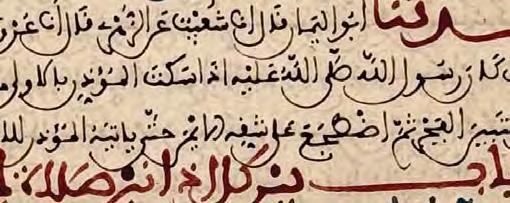 حدثنا ابو اليمان قال انا شعيب عن الزهري قال انا عروة
كان رسول الله صلى الله عليه اذا سكت المؤذن بالاولى
يستبين الفجر ثم اضطجع على شقه الايمن حتى ياتيه المؤذن للا
باب بين كل اذانين صلاة